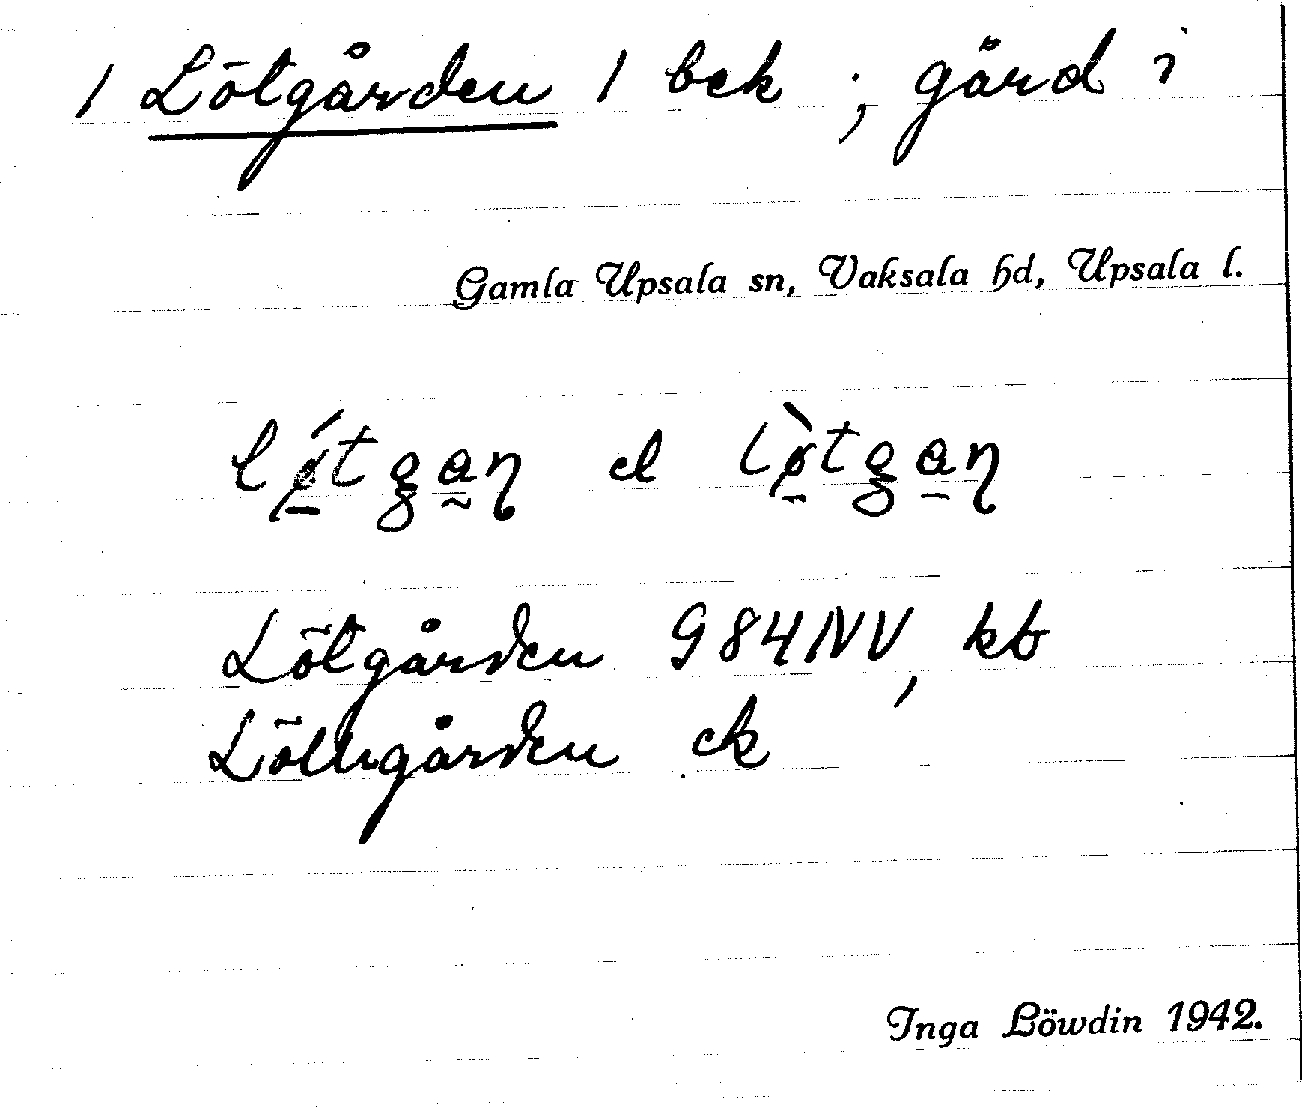 / Lötgården / bek ; gård i
Gamla Upsala sn, Vaksala hd, Upsala l.
lǿ̱tga̰ɳ el lø̰̀tga̱ɳ
Lötgården G84NV, kb
gården ek
Inga Löwdin 1942.